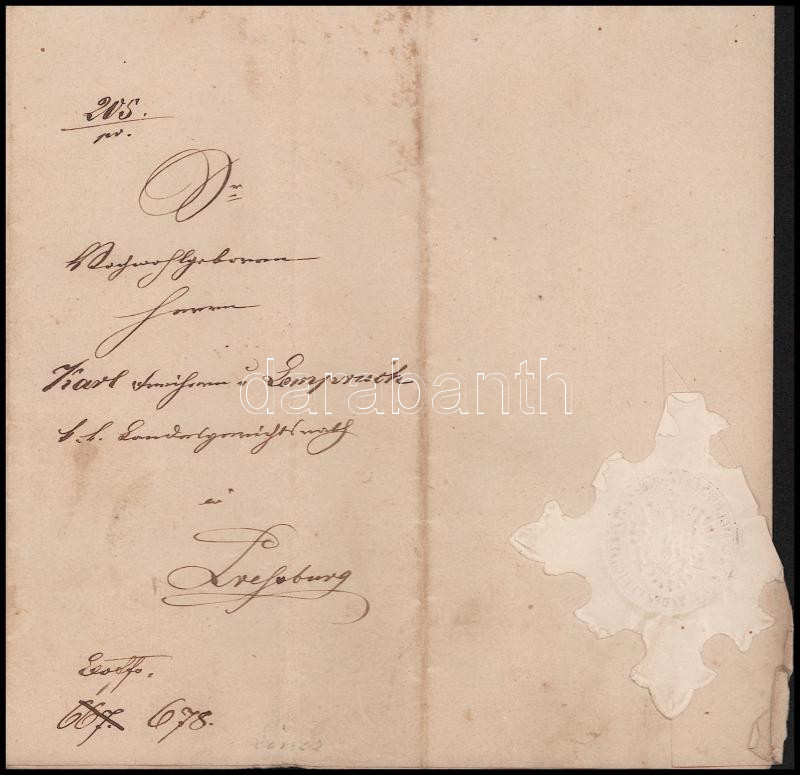 205.
pr.
Sr
Hochwohlgeboren
Herrn
Karl Freiherrn v Lempruch
k. k. Landesgerichtsrath
in
Preßburg
667. 678.
darabanth